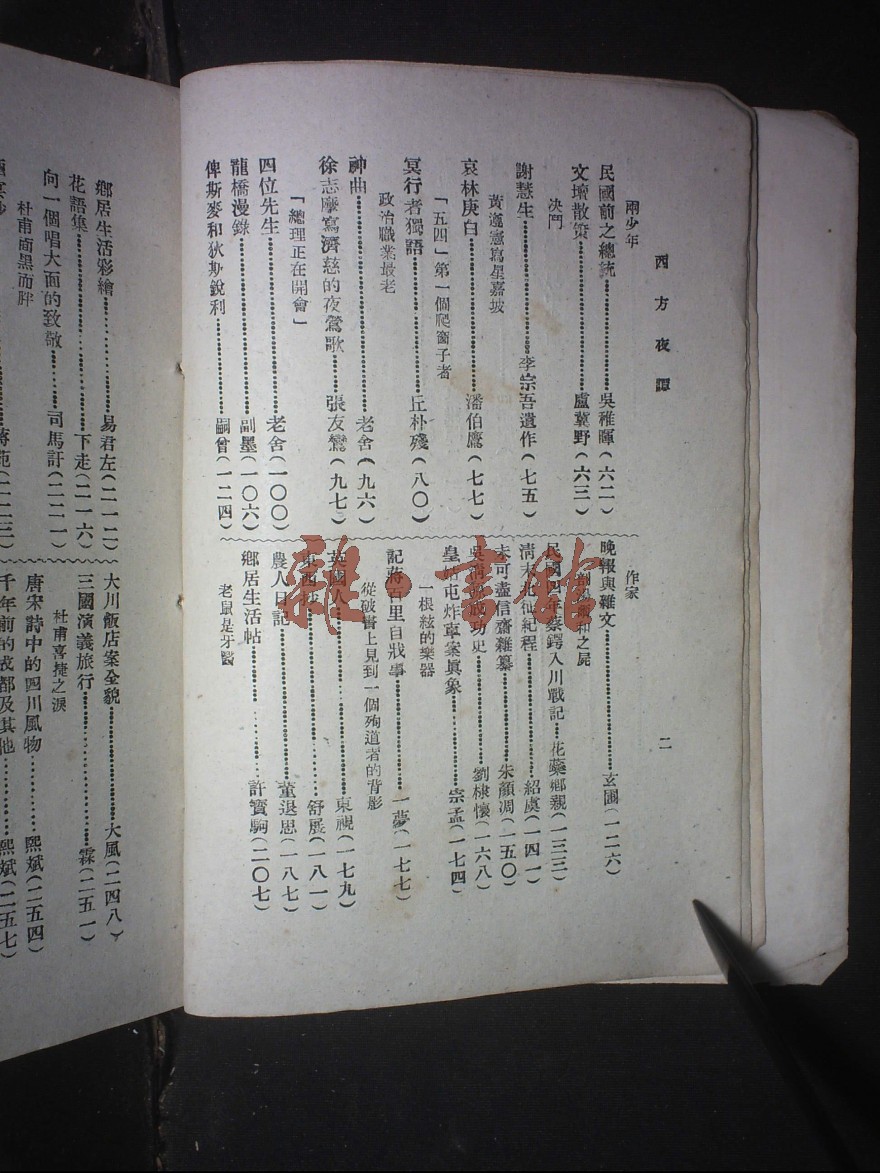 西方夜譚
二
兩少年
民國前之總統……吳稚暉(六二)
文壇散策……盧冀野(六三)
決鬥
謝慧生……李宗吾遺作(七五)
黃遵憲寫星嘉坡
哀林庚白……潘伯鷹(七七)
「五四」第一個爬窗子者
冥行者獨語……丘朴殘(八〇)
政治職業最老
神曲……老舍(九六)
徐志摩寫濟慈的夜鶯歌……張友鸞(九七)
「總理正在開會」
四位先生……老舍(一〇〇)
龍橋漫錄……副墨(一〇六)
俾斯麥和狄斯銳利……嗣曾(一二四)
作家
晚報與雜文……玄圃(一二六)
和之屍
民國四年蔡鍔入川戰記……花藥鄉親(一三三)
清末北征紀程……紹虞(一四一)
未可盡信齋雜纂……朱顏凋(一五〇)
吳清源成功史……劉棣懷(一六八)
皇姑屯炸車案眞象……宗孟(一七四)
一根絃的樂器
記蔣百里自狀事……一夢(一七七)
從破書上見到一個殉道者的背影
英國人……東視(一七九)
東西……舒展(一八一)
農人日記……董退思(一八七)
鄉居生活帖……許寶駒(二〇七)
老鼠是牙醫
鄉居生活彩繪……易君左(二一二)
花語集……下走(二一六)
向一個唱大面的致敬……司馬訏(二二一)
杜甫面黑而胖
大川飯店案全貌……大風(二四八)
三國演義旅行……霖(二五一)
杜甫喜捷之淚
唐宋詩中的四川風物……熙斌(二五四)
千年前的成都及其他……熙斌(二五七)
雜·書館